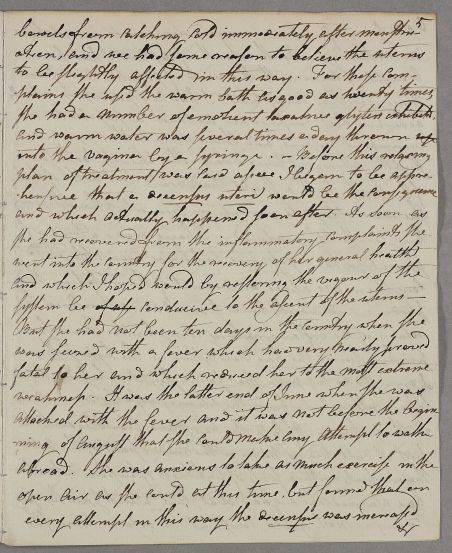 5
bowels from catching cold immediately after menstru-
ation, and we had some reason to believe the uterus
to be slightly affected in this way. For these com-
plaints she used the warm bath as good as twenty times,
she had a number of emollient laxative glysters exhibited,
and warm water was several times a day thrown up
into the vagina by a syringe. — Before this relaxing
plan of treatment was laid aside I began to be appre-
hensive that a decensus uteri would be the consequence
and which actually happened soon after. As soon as
she had recovered from the inflammatory complaints she
went into the country for the recovery of her general health
and which I hoped would by restoring the vigour of the
system be conducive to the ascent of the uterus —
But she had not been ten days in the country when she
was seized with a fever which had very nearly proved
fatal to her and which reduced her to the most extreme
weakness. It was the latter end of June when she was
attacked with the fever and it was not before the begin
ning of August that she could make any attempt to walk
abroad. She was anxious to take as much exercise in the
open air as she could at this time, but found that on
every attempt in this way the decensus was increased